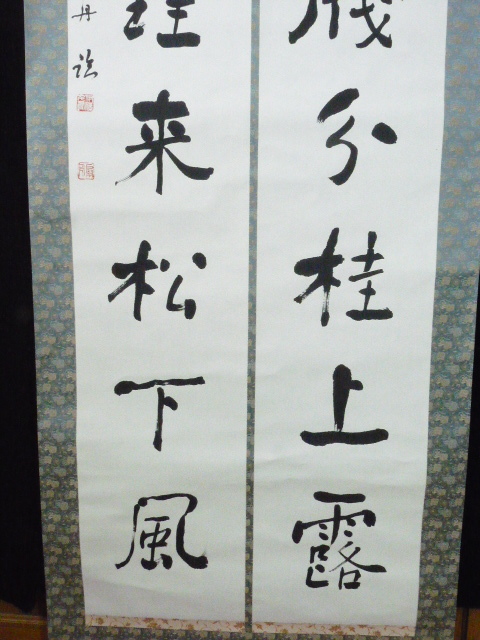 分桂上露
来松下風
丹